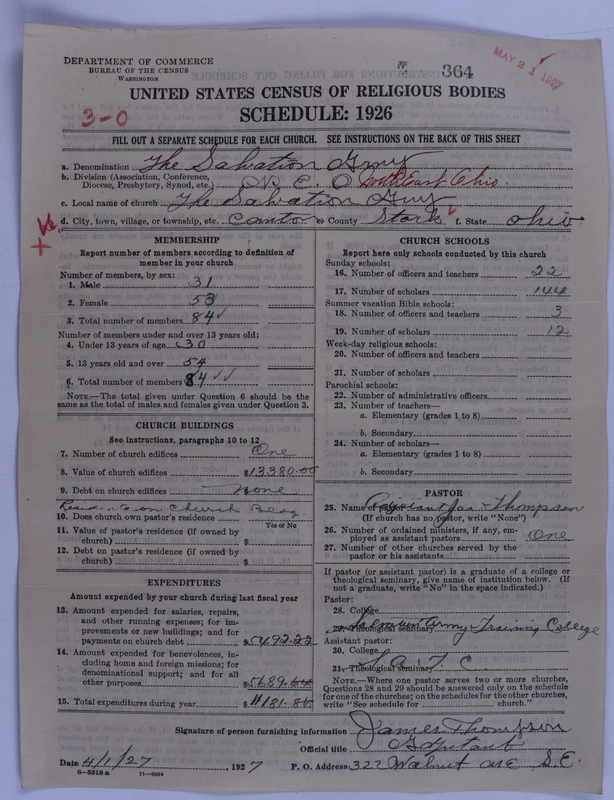 DEPARTMENT OF COMMERCE
BUREAU OF THE CENSUS
WASHINGTON
364
MAY 21 1927
UNITED STATES CENSUS OF RELIGIOUS BODIES
3-0
SCHEDULE: 1926
FILL OUT A SEPARATE SCHEDULE FOR EACH CHURCH. SEE INSTRUCTIONS ON THE BACK OF THIS SHEET
a. Denomination The Salvation Army
b. Division (Association, Conference, Diocese, Presbytery, Synod, etc.) N. E. O North East Ohio.
c. Local name of church The Salvation Army
d. City, town, village, or township, etc. Canton e. County Stark f. State Ohio
MEMBERSHIP
Report number of members according to definition of member in your church
Number of members, by sex:
1. Male 31
2. Female 53
3. Total number of members 84
Number of members under and over 13 years old:
4. Under 13 years of age 30
5. 13 years old and over 54
6. Total number of members 84
NOTE.—The total given under Question 6 should be the same as the total of males and females given under Question 3.
CHURCH BUILDINGS
See instructions, paragraphs 10 to 12
7. Number of church edifices One
8. Value of church edifices $13380.00
9. Debt on church edifices None
Residence on Church Bldg
10. Does church own pastor's residence
Yes or No
11. Value of pastor's residence (if owned by church) $
12. Debt on pastor's residence (if owned by church) $
EXPENDITURES
Amount expended by your church during last fiscal year
13. Amount expended for salaries, repairs, and other running expenses; for improvements or new buildings; and for payments on church debt $5492.22
14. Amount expended for benevolences, including home and foreign missions; for denominational support; and for all other purposes $5689.64
15. Total expenditures during year $11181.86
CHURCH SCHOOLS
Report here only schools conducted by this church
Sunday schools:
16. Number of officers and teachers 22
17. Number of scholars 144
Summer vacation Bible schools:
18. Number of officers and teachers 3
19. Number of scholars 12
Week-day religious schools:
20. Number of officers and teachers
21. Number of scholars
Parochial schools:
22. Number of administrative officers
23. Number of teachers—
a. Elementary (grades 1 to 8)
b. Secondary
24. Number of scholars—
a. Elementary (grades 1 to 8)
b. Secondary
PASTOR
25. Name of Adjutant Jas Thompson
(If church has no pastor, write "None")
26. Number of ordained ministers, if any, employed as assistant pastors One
27. Number of other churches served by the pastor or his assistants
If pastor (or assistant pastor) is a graduate of a college or theological seminary, give name of institution below. (If not a graduate, write "No" in the space indicated.)
Pastor:
28. College
29. Theological seminary Salvation Army Training College
Assistant pastor:
30. College
31. Theological seminary S. A. T. C.
NOTE.—Where one pastor serves two or more churches, Questions 28 and 29 should be answered only on the schedule for one of the churches; on the schedules for the other churches, write "See schedule for church."
Signature of person furnishing information James Thompson
Official title Adjutant
Date 4/1/27, 1927 P. O. Address 327 Walnut ave S.E.
8-5518a 11-9064